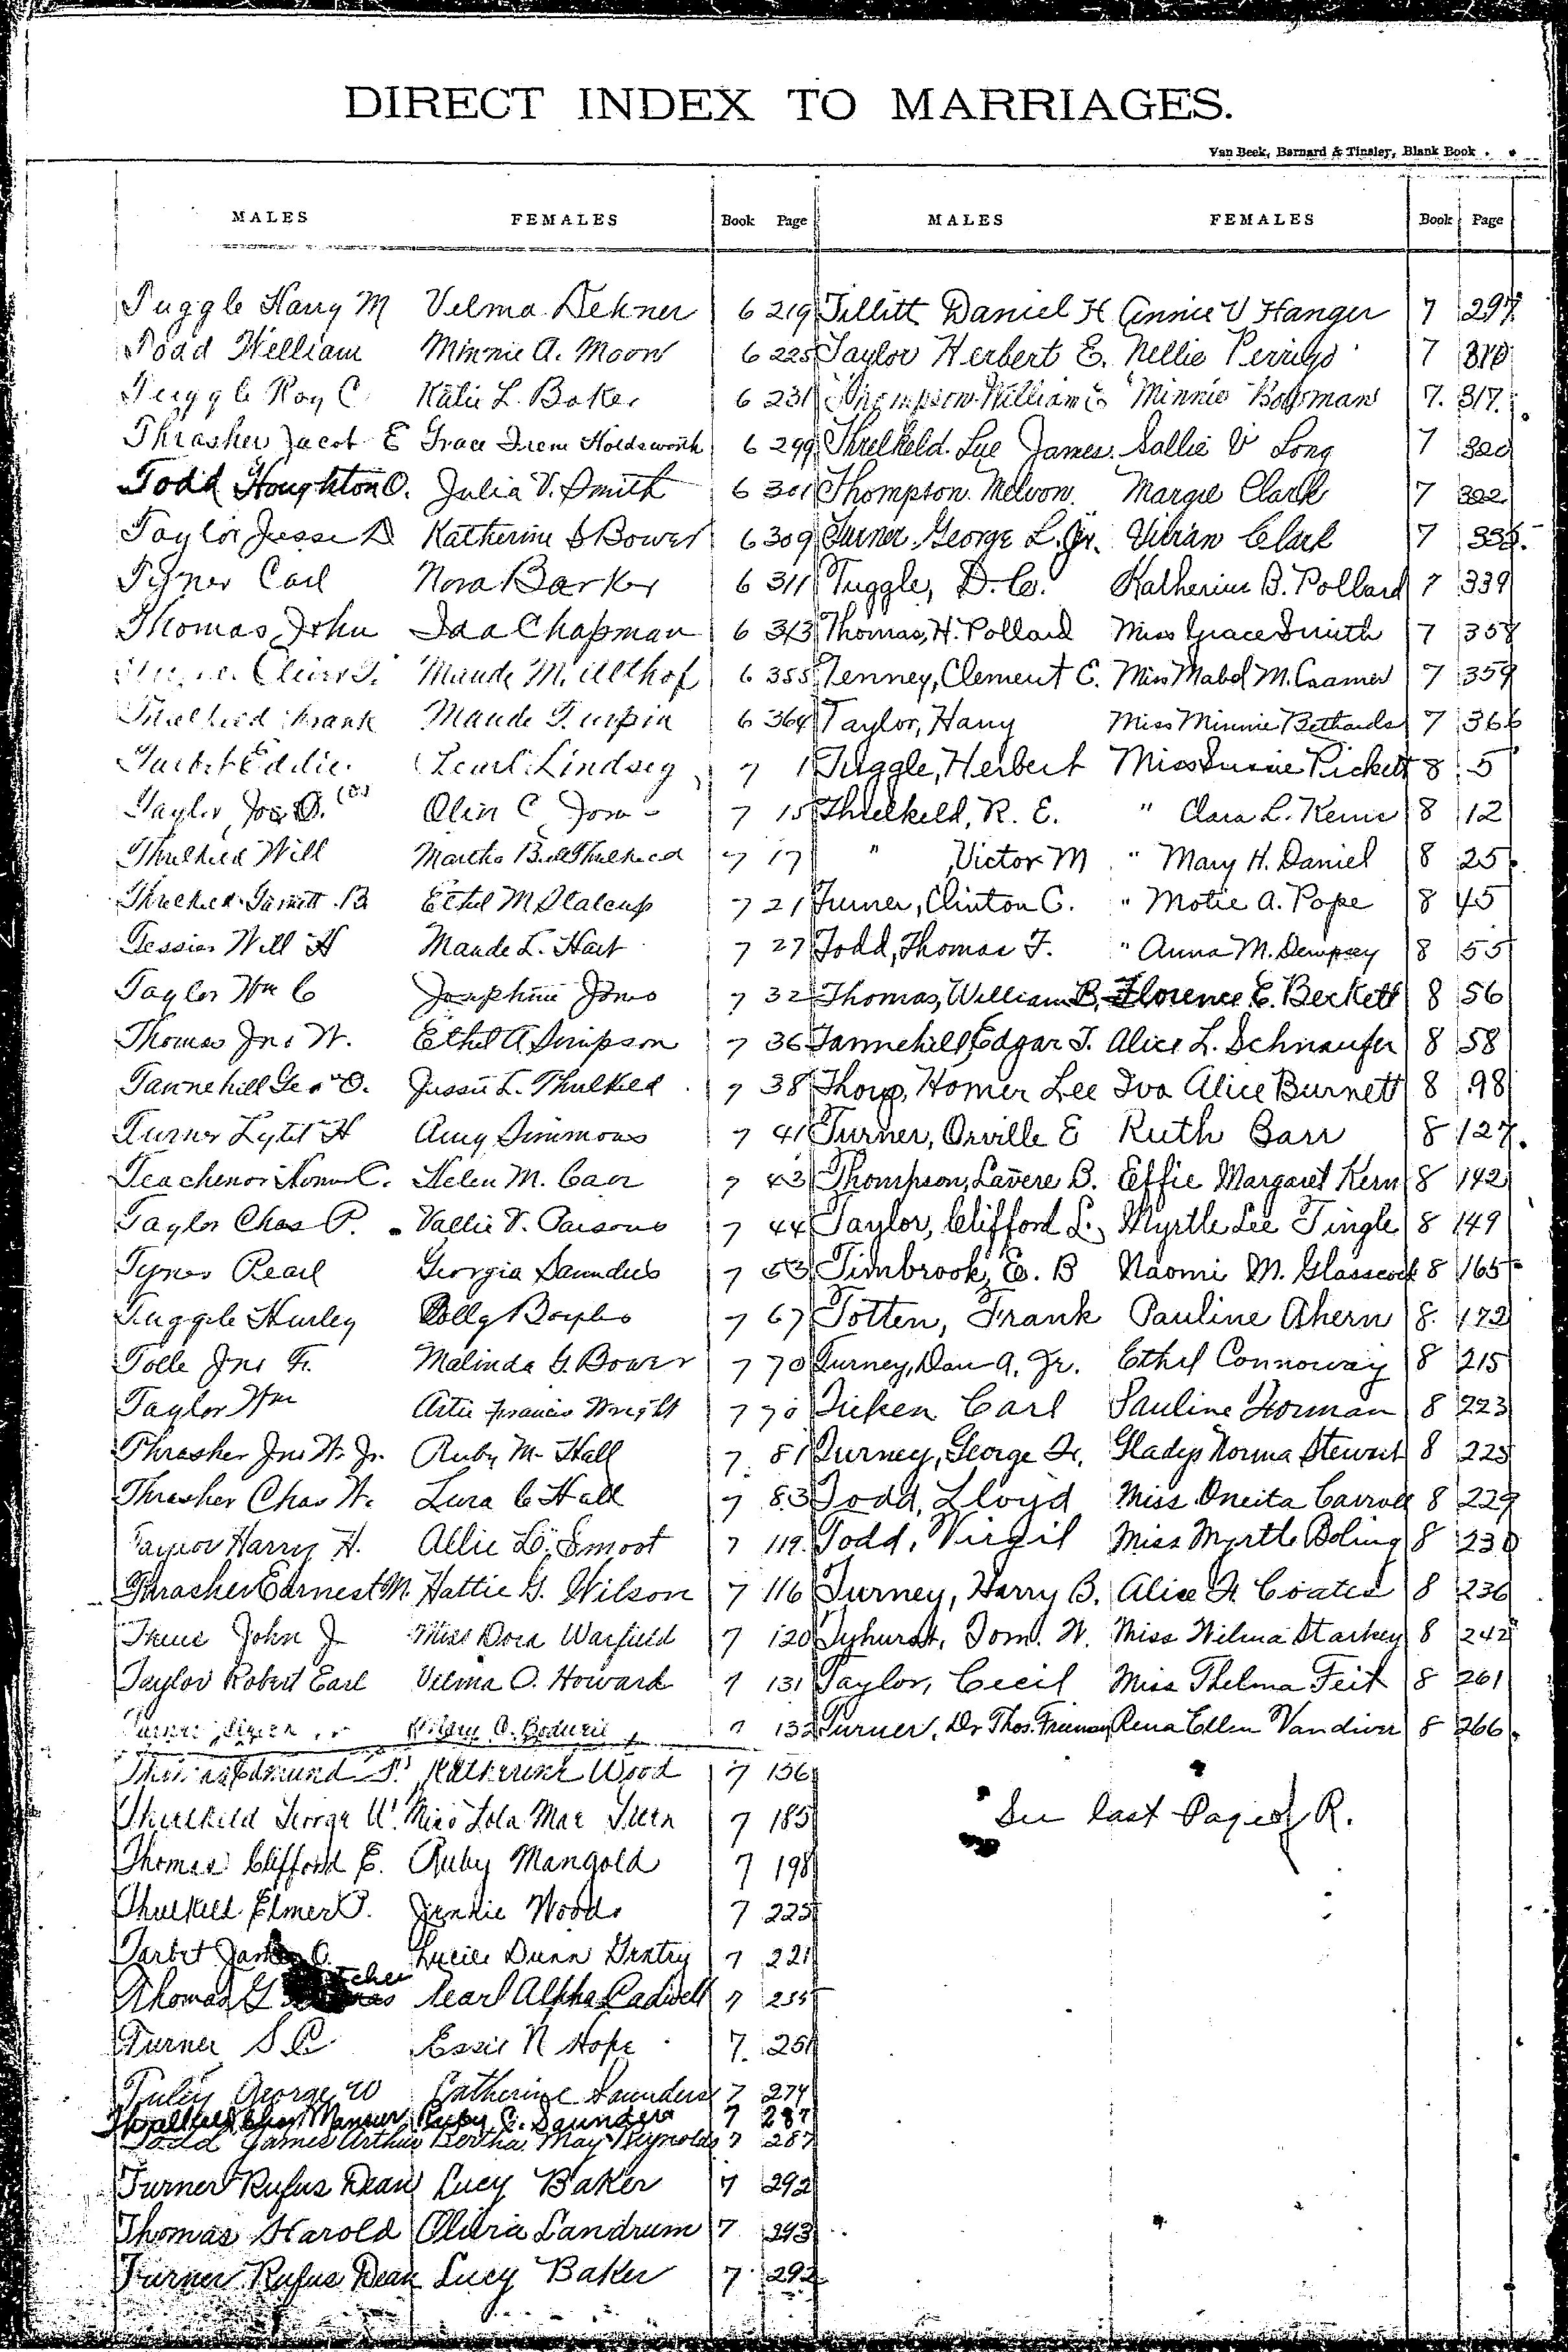 DIRECT INDEX TO MARRIAGES.
Van Beek, Barnard & Tinsley, Blank Book
MALES FEMALES Book Page MALES FEMALES Book Page
Tuggle Harry M Velma Dehner 6 219 Tillitt Daniel H Annie V Hanger 7 297
Todd William Minnie A. Moon 6 225 Taylor Herbert E. Nellie Perrigo 7 310
Tuggle Roy C Katie L. Baker 6 231 Thompson William Minnie 7. 317.
Thrasher Jacob E Grace Irene Holdsworth 6 299 Threlkeld Lue James Sallie V Long 7 320
Todd Houghton O. Julia V. Smith 6 301 Thompson Melvon Margie Clark 7 322
Taylor Jesse D Katherine S Bower 6 309 Turner George L. Jr. Vivian Clark 7
Carl Nora Barker 6 311 Tuggle, D. C. Katherine B. Pollard 7 339
Thomas John Ida Chapman 6 313 Thomas, H. Pollard Miss Grace Smith 7 358
Maude M. 6 355 Tenney, Clement C. Miss Mabel M. Cramer 7 359
Frank Maude Turpin 6 364 Taylor, Harry Miss Minnie Bethards 7 366
Eddie Pearl Lindsey 7 1 Tuggle, Herbert Miss Susie Pickett 8 5
Taylor Joe O. (Col) Olin C Jones 7 15 Threlkeld, R. E. " Clara L. Kerns 8 12
Threlkeld Will Martha Bell Threlkeld 7 17 " , Victor M " Mary H. Daniel 8 25
Threlkeld Garnett B Ethel M Stalcup 7 21 Turner, Clinton C. " Motie A. Pope 8 45
Tessier Will H Maude L. Hart 7 27 Todd, Thomas F. " Anna M. Dempsey 8 55
Taylor Wm C Josephine Jones 7 32 Thomas, William B, Florence E. Beckett 8 56
Thomas Jno W. Ethel A. Simpson 7 36 Tannehill, Edgar T. Alice L. Schnaufer 8 58
Tannehill Geo O. Jessie L. Threlkeld 7 38 Thorp, Homer Lee Iva Alice Burnett 8 98
Turner Lytel H Amy Simmons 7 41 Turner, Orville E Ruth Barr 8 127
Teachenor Homer C. Helen M. Carr 7 43 Thompson, Lavere B. Effie Margaret Kern 8 142
Taylor Chas P. Vallie V. Parsons 7 44 Taylor, Clifford L. Myrtle Lee Tingle 8 149
Tyner Pearl Georgia Saunders 7 53 Timbrook, E. B Naomi M. Glasscock 8 165
Tuggle Hurley Dolly Boyles 7 67 Totten, Frank Pauline Ahern 8. 172
Tolle Jno F. Malinda G. Bower 7 70 Turney, Dan A. Jr. Ethel Connoway 8 215
Taylor Wm Artie Francis Wright 7 70 Ticken Carl Pauline Forman 8 223
Thrasher Jno W. Jr. Ruby M. Hall 7. 81 Turney, George Gladys Norma Stewart 8 225
Thrasher Chas W. Lura C Hall 7 83 Todd, Lloyd Miss Oneita Carroll 8 229
Taylor Harry H. Allie L. Smoot 7 119. Todd, Virgil Miss Myrtle Boling 8 230
Thrasher Earnest M. Hattie G. Wilson 7 116 Turney, Harry B. Alice H. Coates 8 236
True John J Miss Dora Warfield 7 120 Tyhurst, Tom. W. Miss Wilma Starkey 8 242
Taylor Robert Earl Velma O. Howard 7 131 Taylor, Cecil Miss Thelma Feit 8 261
Turner 7 132 Turner, Dr Thos. Freeman, Rena Ellen Vandiver 8 266
Thomas Edmund Katherine Wood 7 156
Threlkeld George W. Miss Lola Mae Teen 7 185
See last Page of R.
Thomas Clifford E. Ruby Mangold 7 198
Threlkeld Elmer P. Jennie Woods 7 225
Tarbet James O. Lucile Dunn Gentry 7 221
Thomas G Pearl Alpha Cadwell 7 255
Turner S C Essie N Hope 7. 251
Tuley George W Catherine Saunders 7 274
Threlkeld Chas Mansur Ruby C. Saunders 7 287
Todd James Arthur Bertha May Reynolds 7 287
Turner Rufus Dean Lucy Baker 7 292
Thomas Harold Olivia Landrum 7 293
Turner Rufus Dean Lucy Baker 7 292